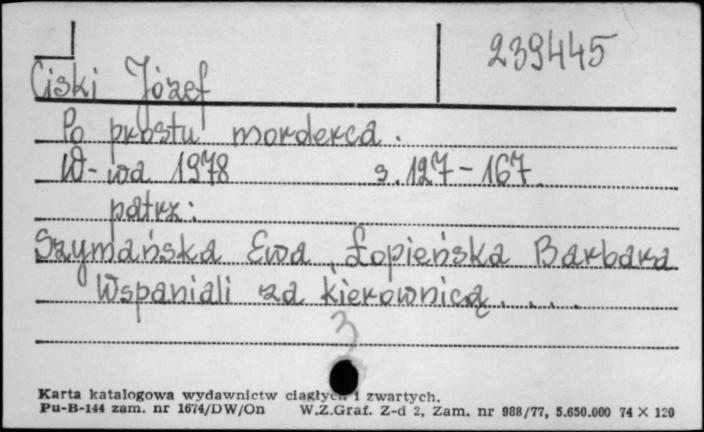 239445
Ciski Józef
Po prostu morderca.
W-wa 1978 s. 127-167.
patrz:
Szymańska Ewa, Łopieńska Barbara
Wspaniali za kierownicą....
3
Karta katalogowa wydawnictw ciągłych i zwartych.
Pu-B-144 zam. nr 1674/DW/On W.Z.Graf. Z-d 2, Zam. nr 988/77, 5.650.000 74 X 120